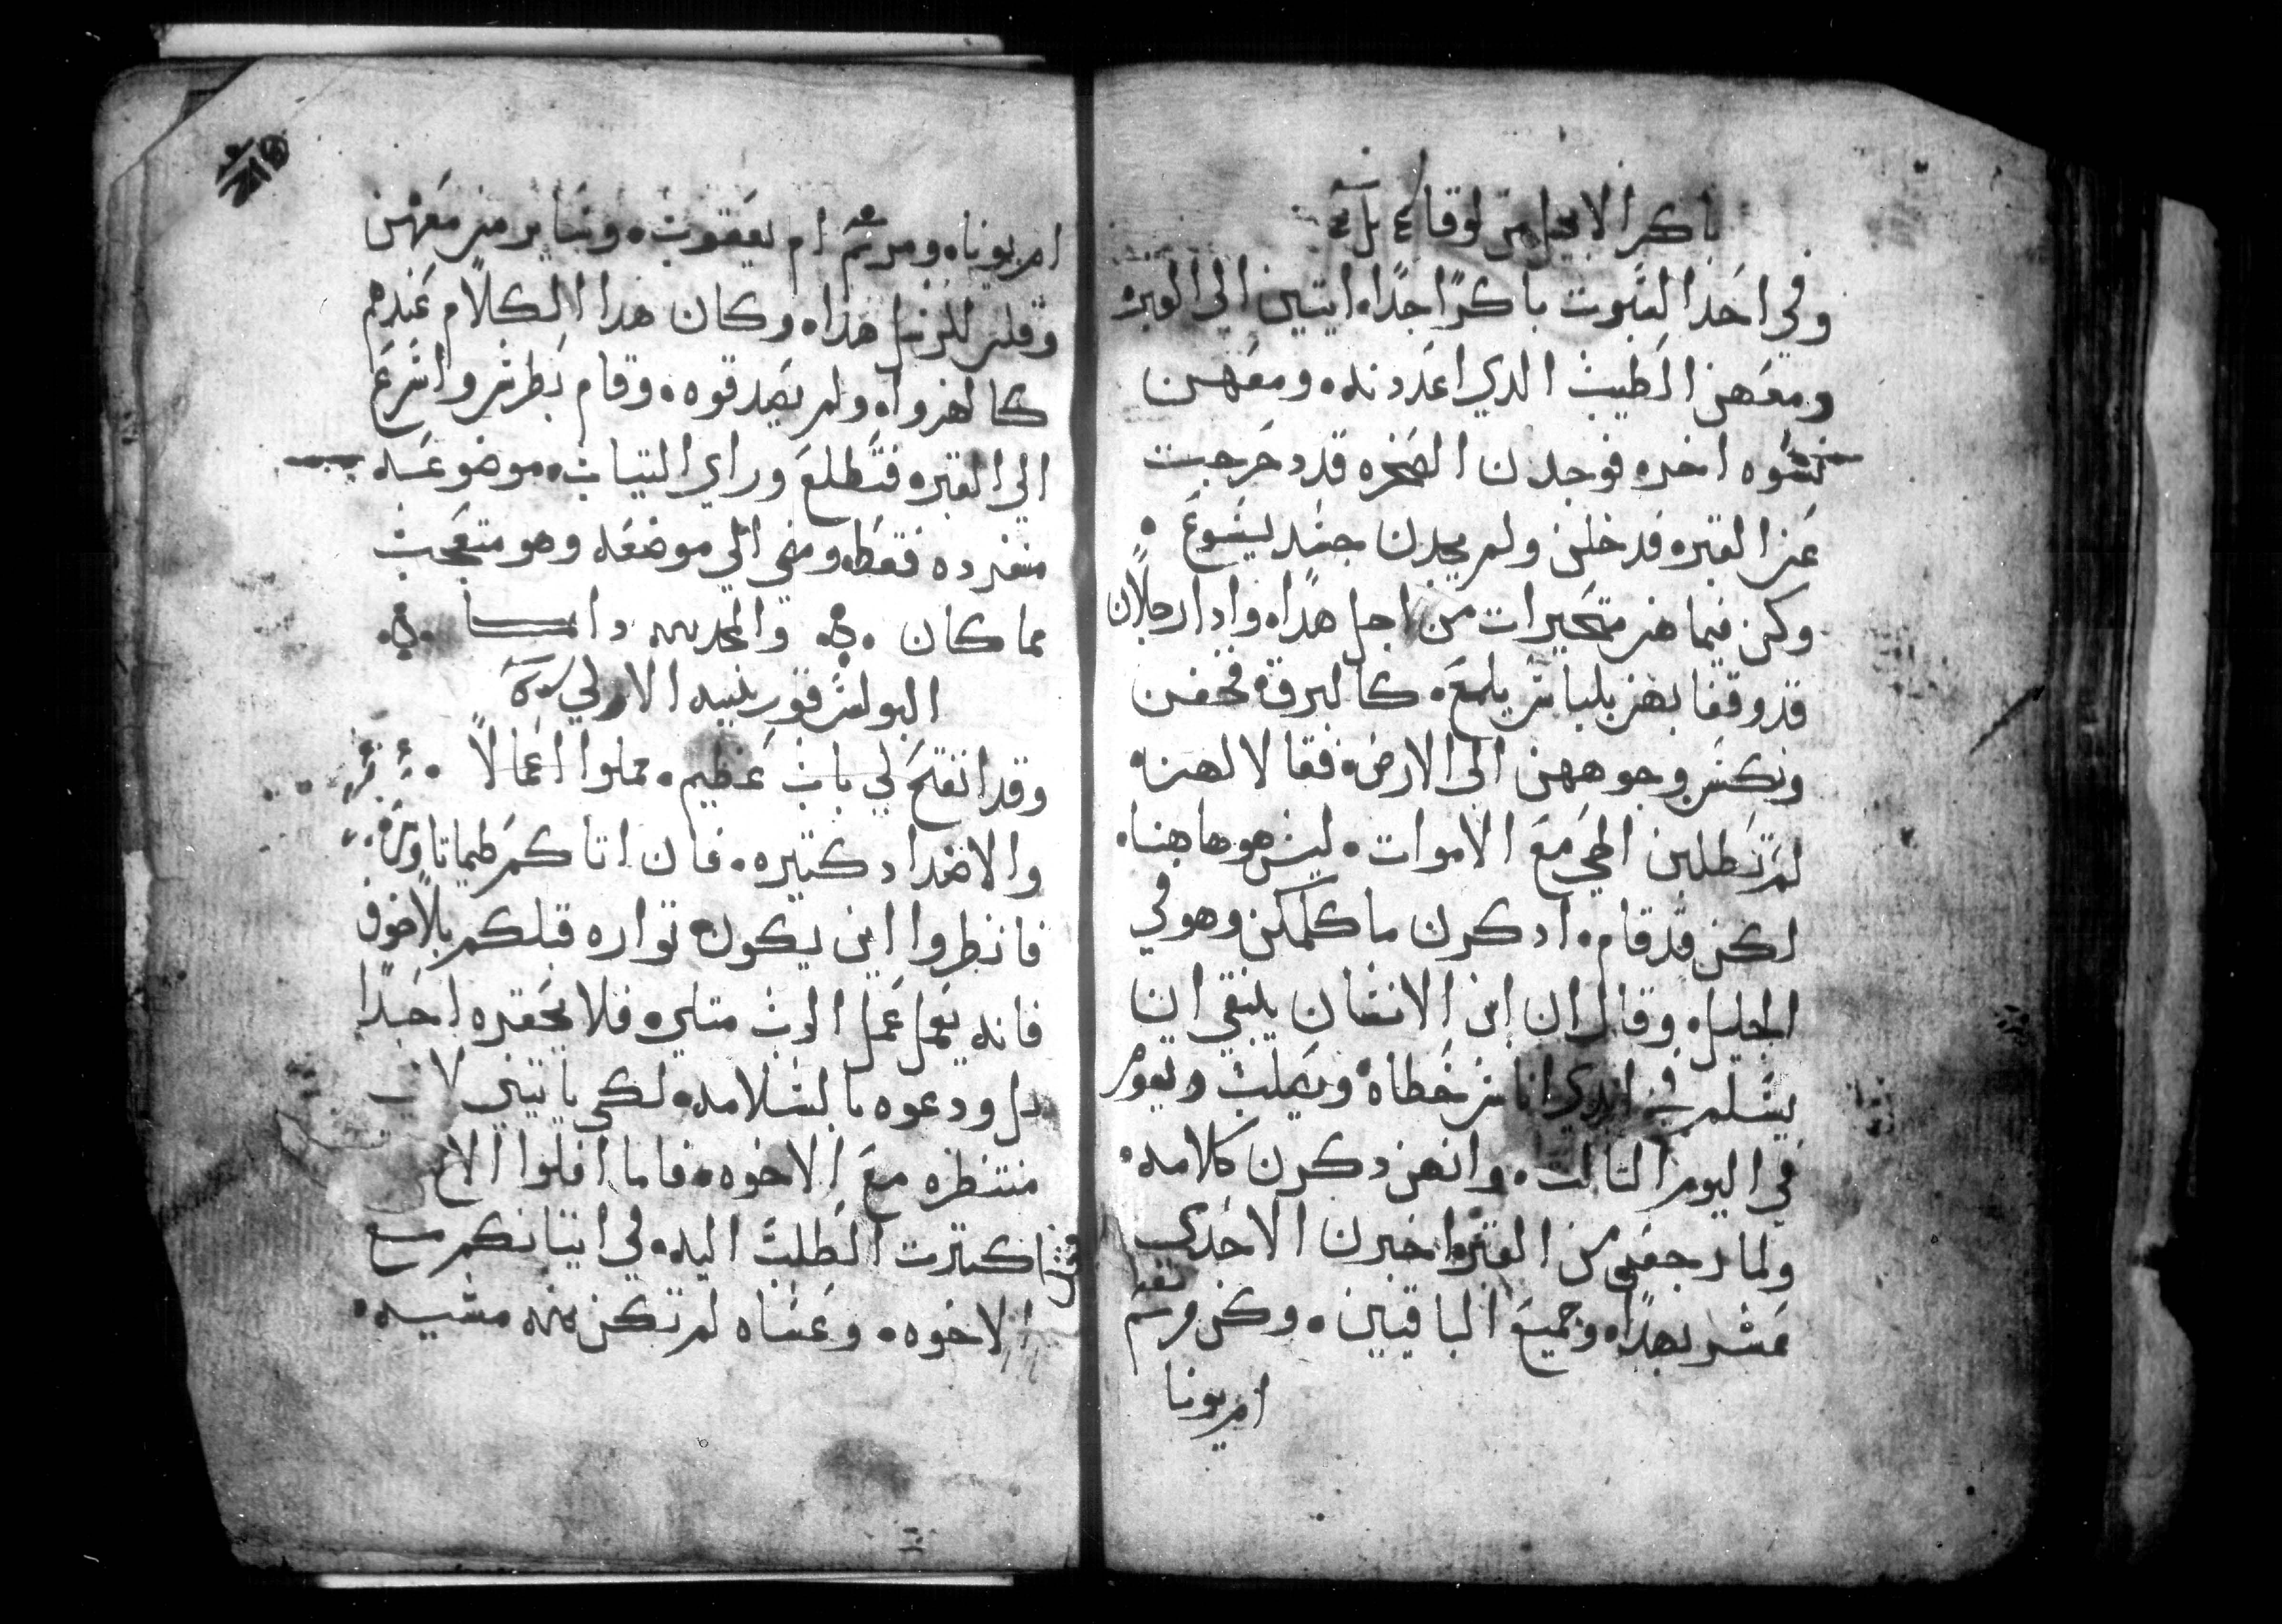 باكر الانجيل من لوقا
وفي احد السبوت باكرًا جدًا، اتين الي القبره
ومعهن الطيب الدي اعددنه، ومعهن
نسوه اخره فوجدن الصخره قد دحرجت
عن القبره فدخلن ولم يجدن جسد يسوع
وكن فيما هن متحيرات من اجل هدا، وادا رجلان
قد وقفا بهن بلباس يلمع، كالبرق، فخفن
ونكسن وجوههن الي الارض، فقالا لهن،
لم تطلبن الحي مع الاموات، ليس هو هاهنا،
لكن قد قام، ادكرن ما كلمكن وهو في
الجليل، وقال ان ابن الانسان ينبغي ان
يسلم في ايدي اناس خطاه، ويصلب ويقوم
في اليوم التالت، وانهن دكرن كلامه،
ولما رجعن من القبر، اخبرن الاحدي
عشر بهدا، وجميع الباقيين، وكن مريم
ام يونا
ام يونا، ومريم ام يعقوب، وسايرمن معهن
وقلن للرسل هدا، وكان هدا الكلام عندهم
كالهزوا، ولم يصدقوه، وقام بطرس واسرع
الي القبره فتطلع وراي التياب، موضوعه
منفرده فقط، ومضي الي موضعه وهو متعجب
مما كان والمجد لله دايما
البولس قورنتيه الاولي
وقد انفتح لي باب عظيم، مملوا اعمالاً
والاضداد كتيره، فان اتاكم طيماتاوس،
فانطروا اين يكون تواره قبلكم بلا خوف
فانه يعمل عمل الرب متلي، فلا يحقره احدًا
بل ودعوه بالسلامه، لكي ياتيني لاني
منتظره مع الاخوه، فاما افلوا الاخ
فقد اكترت الطلب اليه، في اتيانكم مع
الاخوه، وعساه لم تكن منه مشيه،